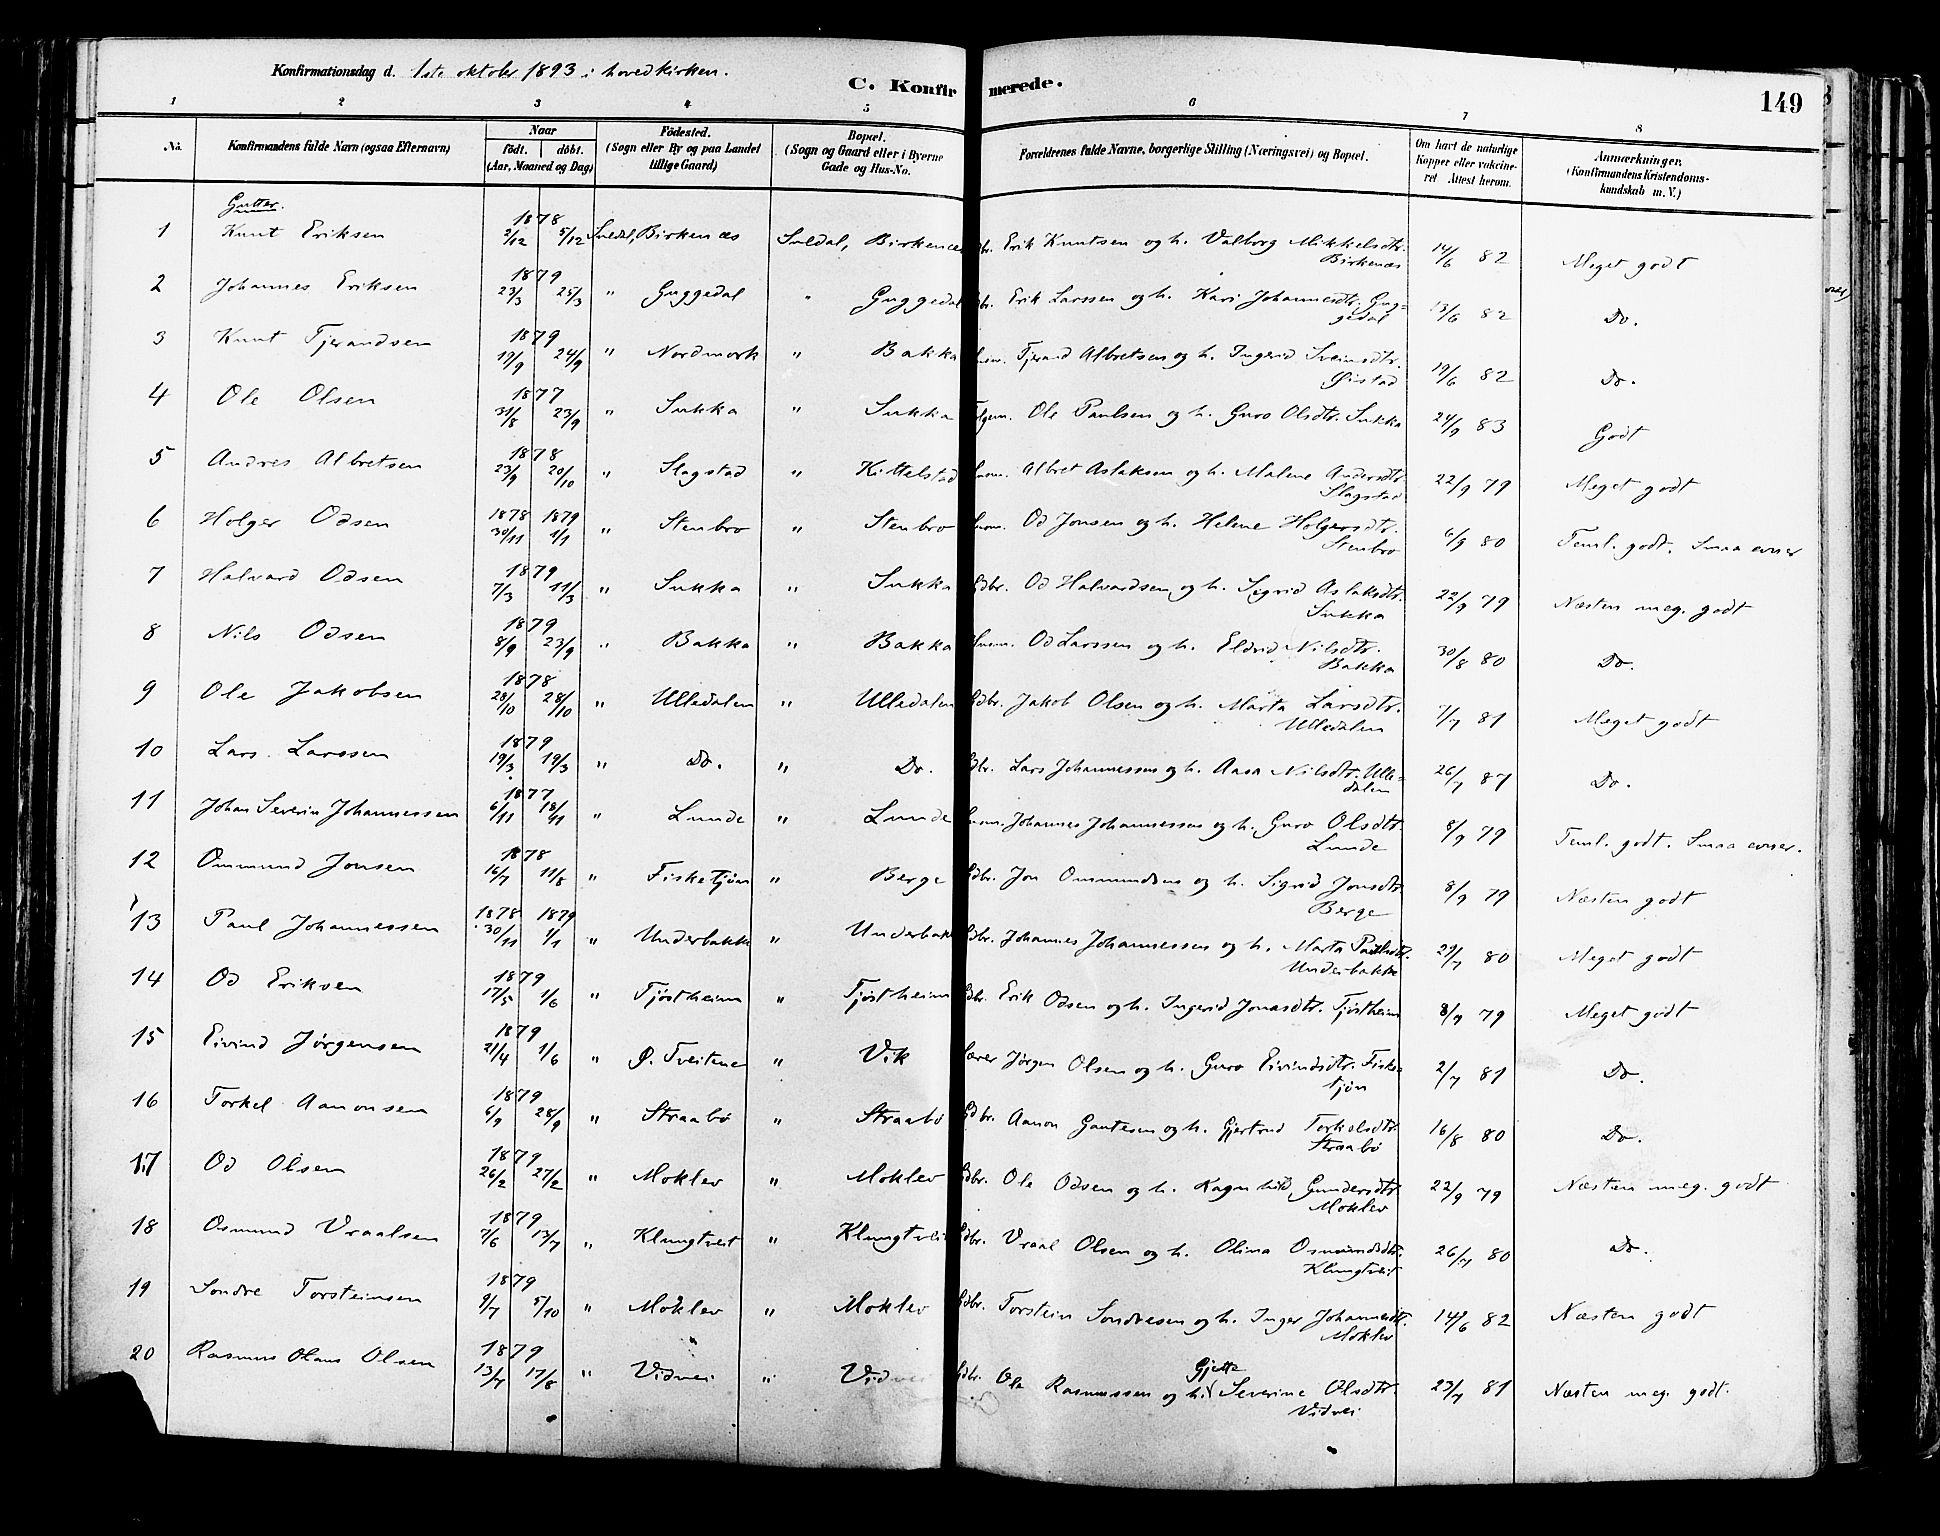 Konfirmationsdag d. 1ste oktober 1893 i hovedkirken.
C. Konfirmerede.
149
1 2 3 4 5 6 7 8
No. Konfirmandens fulde Navn (ogsaa Efternavn) Naar födt. döbt. (Aar, Maaned og Dag) Födested. (Sogn eller By og paa Landet tillige Gaard) Bopæl. (Sogn og Gaard eller i Byerne Gade og Hus-No. Forældrenes fulde Navne, borgerlige Stilling (Næringsvei) og Bopæl. Om havt de naturlige Kopper eller vakcineret Attest herom. Anmærkninger. (Konfirmandens Kristendomskundskab m. V.)
Gutter.
1 Knut Eriksen 1878 2/12 5/12 Suldal, Birkenæs Suldal, Birkenæs Gbr. Erik Knutsen og h. Valborg Mikkelsdtr. Birkenæs 14/6 82 Meget godt
2 Johannes Eriksen 1879 23/3 25/3 " Guggedal " Guggedal Gbr. Erik Larssen og h. Kari Johannesdtr. Guggedal 13/6 82 Do.
3 Knut Tjerandsen 1879 19/9 24/9 " Nordmork " Bakka Husm. Tjerand Albretsen og h. Ingerid Sveinsdtr. Øistad 19/6 82 Do.
4 Ole Olsen 1877 31/8 23/9 " Sukka " Sukka Ole Paulsen og h. Guro Olsdtr. Sukka 24/9 83 Godt
5 Andres Albretsen 1878 23/9 20/10 " Slagstad " Kittelstad Husm. Albret Aslaksen og h. Malene Andersdtr. Slagstad 22/9 79 Meget godt
6 Holger Odsen 1878 30/11 1879 1/1 " Stenbro " Stenbro Husm. Od Jonsen og h. Helene Holgersdtr. Stenbro 6/9 80 Teml. godt. Smaa evner
7 Halvard Odsen 1879 7/3 11/3 " Sukka " Sukka Gdbr. Od Halvardsen og h. Sigrid Aslaksdtr. Sukka 22/9 79 Næsten meg. godt
8 Nils Odsen 1879 8/9 23/9 " Bakka " Bakka Husm. Od Larssen og h. Eldrid Nilsdtr. Bakka 30/8 80 Do.
9 Ole Jakobsen 1878 28/10 28/10 " Ulledalen " Ulledalen Gdbr. Jakob Olsen og h. Marta Larsdtr. Ulledalen 7/7 81 Meget godt
10 Lars Larssen 1879 19/3 19/3 " Do. " Do. Gbr. Lars Johannessen og h. Aasa Nilsdtr. Ulledalen 26/7 87 Do.
11 Johan Severin Johannessen 1877 6/11 18/11 " Lunde " Lunde Husm. Johannes Johannessen og h. Guro Olsdtr. Lunde 8/9 79 Teml. godt. Smaa evner.
12 Ommund Jonsen 1878 16/7 11/8 " Fisketjøn " Berge Gdbr. Jon Ommundsen og h. Sigrid Jonsdtr. Berge 8/9 79 Næsten godt
13 Paul Johannessen 1878 30/11 1879 1/1 " Underbakke " Underbak Gdbr. Johannes Johannessen og h. Marta Paulsdtr. Underbakke 29/7 80 Meget godt
14 Od Eriksen 1879 17/5 1/6 " Tjøstheim " Tjøstheim Gdbr. Erik Odsen og h. Ingerid Jonasdtr. Tjøstheim 8/9 79 Meget godt
15 Eivind Jørgensen 1879 21/4 1/6 " Ø. Tveitene " Vik Lærer Jørgen Olsen og h. Guro Eivindsdtr. Fisketjøn 2/7 81 Do.
16 Torkel Aanonsen 1879 6/9 28/9 " Straabø " Straabø Gdbr. Aanon Gautesen og h. Gjertrud Torkelsdtr. Straabø 16/8 80 Do.
17 Od Olsen 1879 26/2 27/2 " Moklev " Moklev Gdbr. Ole Odsen og h. Ragnhild Gundersdtr. Moklev 22/9 79 Næsten meg. godt
18 Osmund Vraalsen 1879 7/6 13/7 " Klungtveit " Klungtvei Gdbr. Vraal Olsen og h. Olina Osmundsdtr. Klungtveit 26/7 80 Do.
19 Sondre Torsteinsen 1879 9/7 5/10 " Moklev " Moklev Gdbr. Torstein Sondresen og h. Inger Johannesdtr. Moklev 14/6 82 Næsten godt
20 Rasmus Olaus Olsen 1879 13/7 17/8 " Vidvei " Vidvei Gdbr. Ole Rasmussen og h. Severine Olsdtr. Vidvei 23/7 81 Næsten meg. godt.